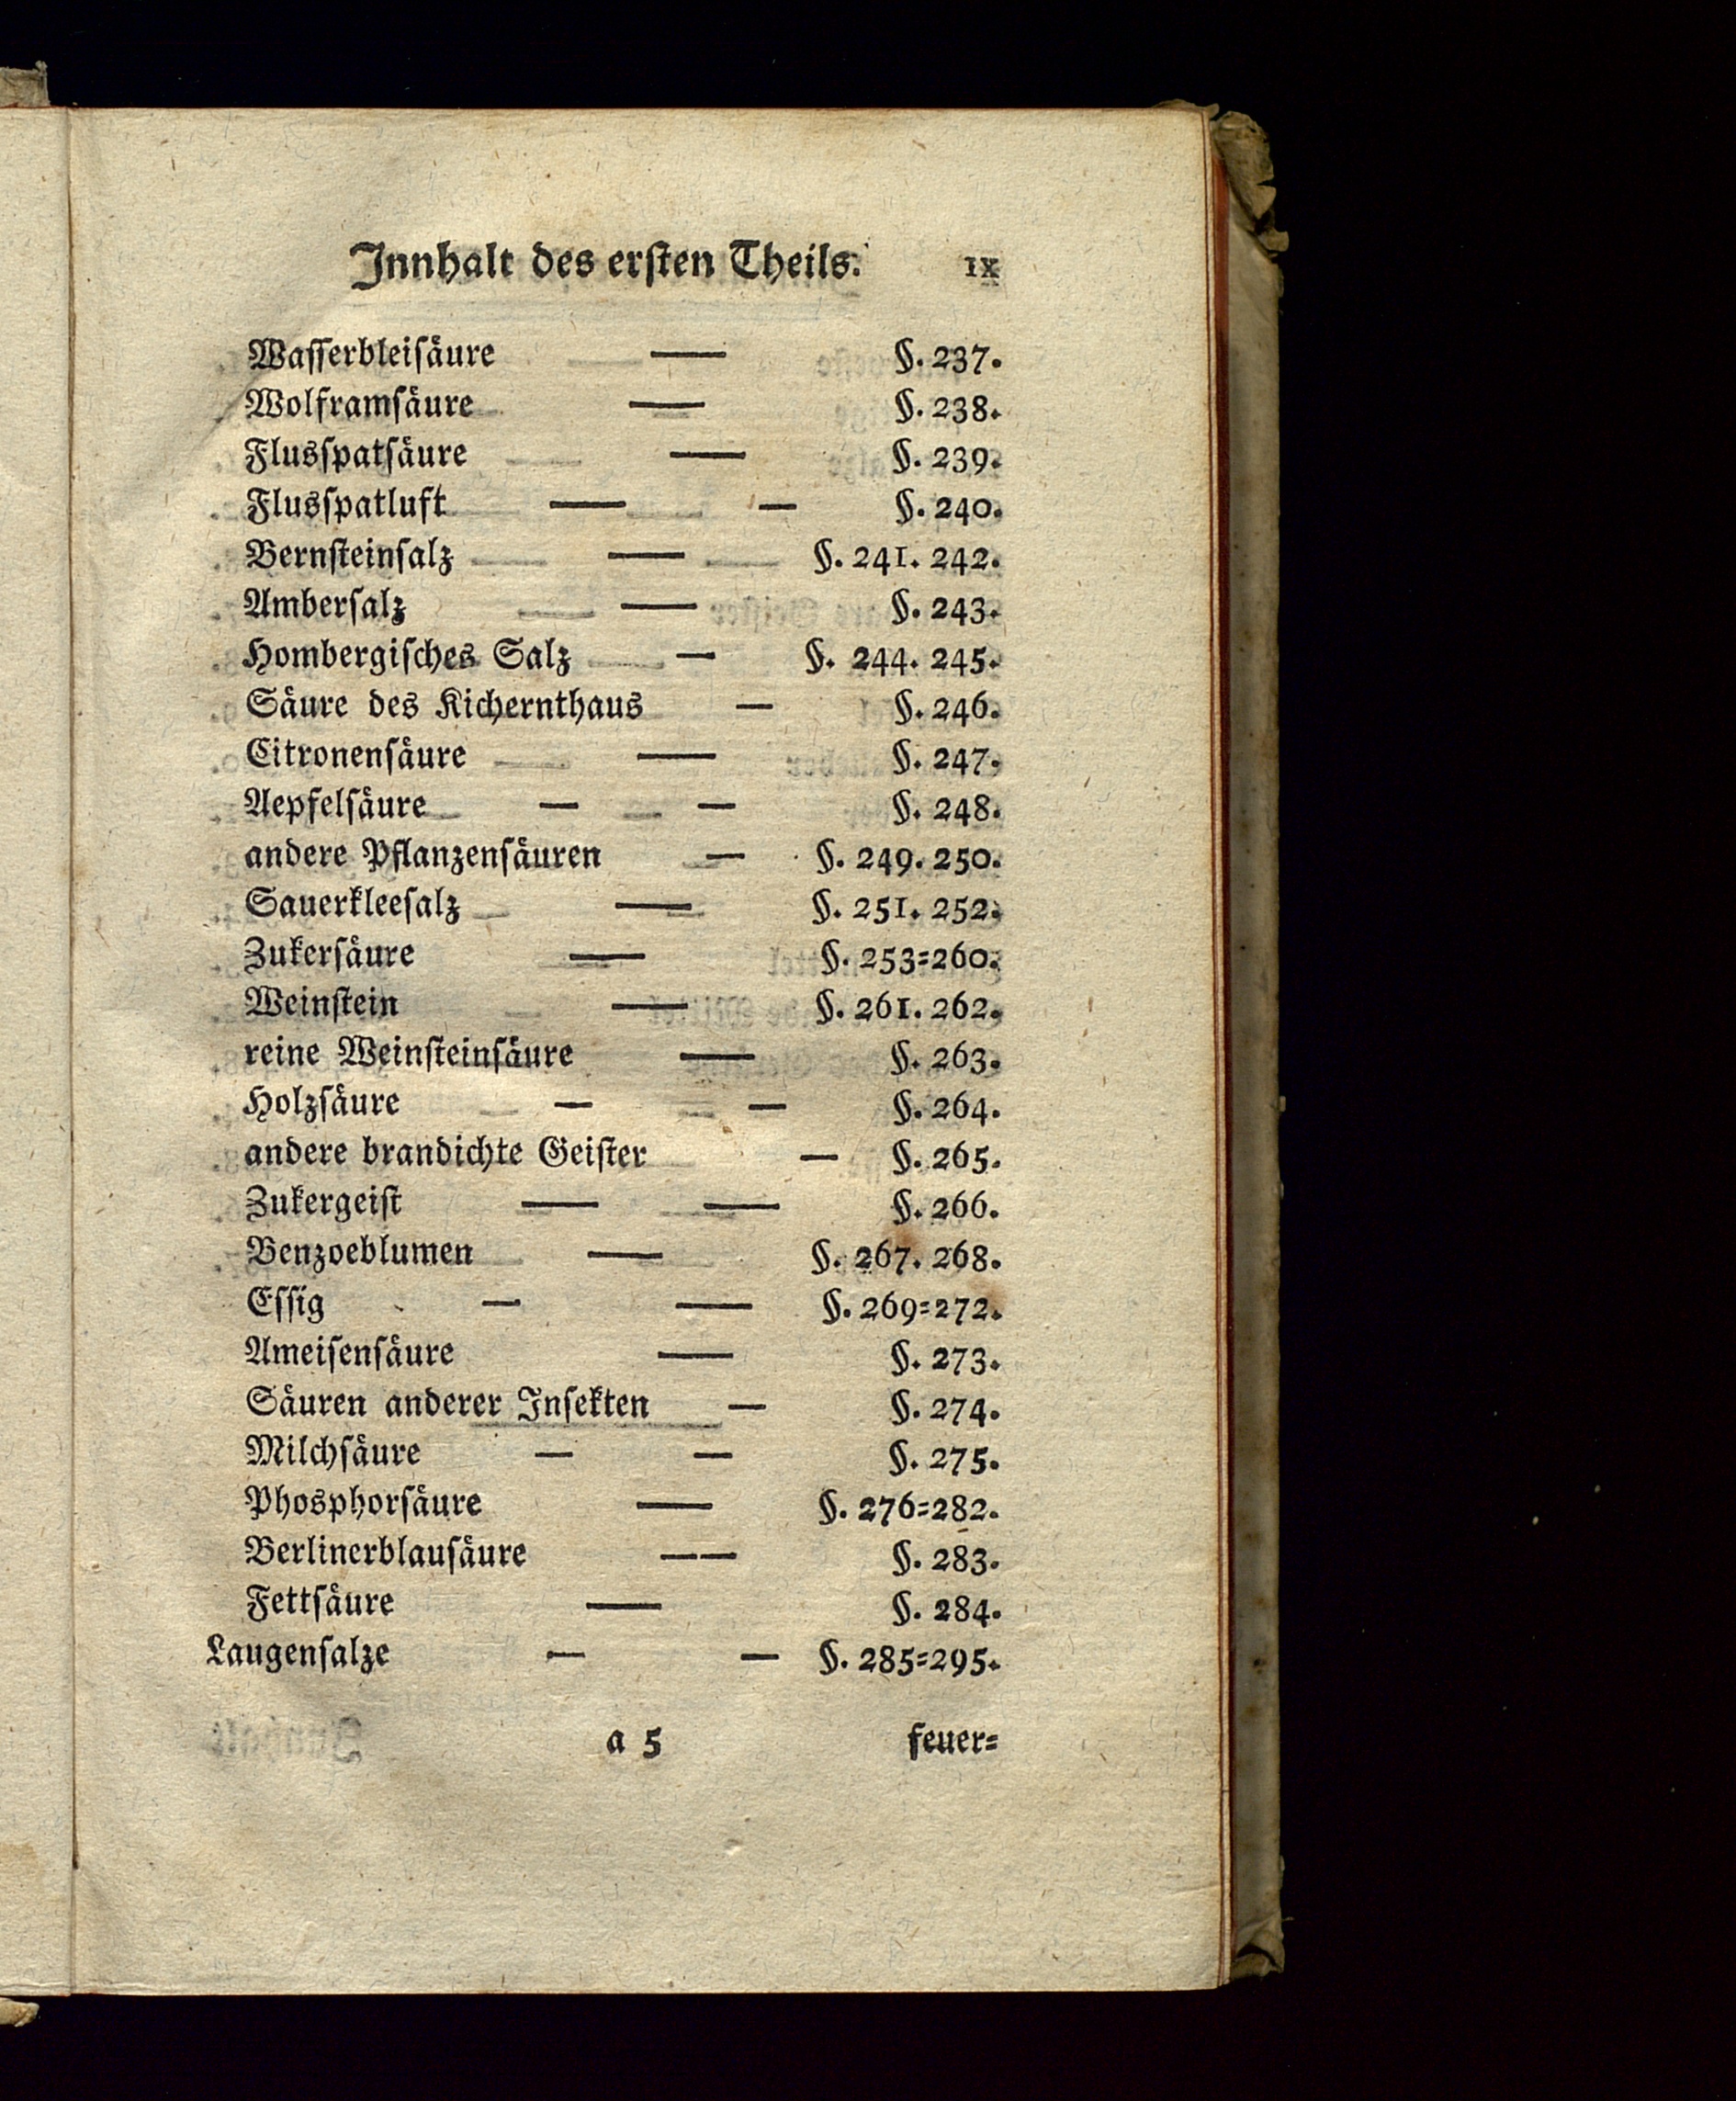 Innhalt des ersten Theils. IX
Wasserbleisäure — §. 237.
Wolframsäure — §. 238.
Flusspatsäure — §. 239.
Flusspatluft — — §. 240.
Bernsteinsalz — §. 241. 242.
Ambersalz — §. 243.
Hombergisches Salz — §. 244. 245.
Säure des Kichernthaus — §. 246.
Citronensäure — §. 247.
Aepfelsäure — — §. 248.
andere Pflanzensäuren — §. 249. 250.
Sauerkleesalz — §. 251. 252.
Zukersäure — §. 253=260.
Weinstein — §. 261. 262.
reine Weinsteinsäure — §. 263.
Holzsäure — — §. 264.
andere brandichte Geister — §. 265.
Zukergeist — — §. 266.
Benzoeblumen — §. 267. 268.
Essig — — §. 269=272.
Ameisensäure — §. 273.
Säuren anderer Insekten — §. 274.
Milchsäure — — §. 275.
Phosphorsäure — §. 276=282.
Berlinerblausäure —— §. 283.
Fettsäure — §. 284.
Laugensalze — — §. 285=295.
a 5 feuer=